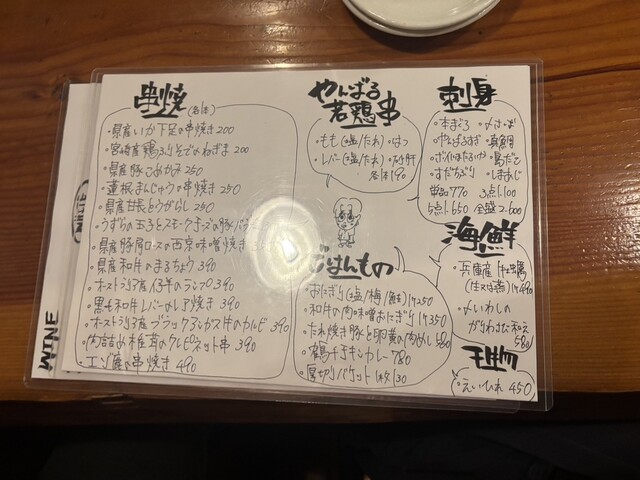 串焼(各1本)
・県産いか下足の串焼き 200
・宮崎産鶏ふりそでのねぎま 200
・県産豚こめかみ 250
・蓮根まんじゅうの串焼き 250
・県産甘長とうがらし 250
・うずらの玉子とスモークチーズの豚バラ
・県産豚肩ロースの西京味噌焼き
・県産和牛のまるちょう 390
・オーストラリア産仔羊のランプ 390
・黒毛和牛レバーのレア焼き 390
・オーストラリア産ブラックアンガス牛のカルビ 390
・肉詰め椎茸のクレピネット串 390
・エゾ鹿の串焼き 490
やんばる
若鶏串
・もも(塩/たれ)・はつ
・レバー(塩/たれ)
各1本190
ごはんもの
・おにぎり(塩/梅/鮭)1ケ250
・和牛の肉味噌おにぎり1ケ350
・たれ焼き豚と卵黄の肉めし 580
・鶴千キーマカレー 780
・厚切りバケット 1枚130
刺身
・本まぐろ ・〆さば
・真鯛
・ボイルほたるいか ・島だこ
・すだちぶり ・しまあじ
単品770 3点1.100
5点1.650 全盛2.600
海鮮
・兵庫産 牡蠣
1ケ490
・〆いわしの
がりわさび和え
580
・えいひれ 450
WINE